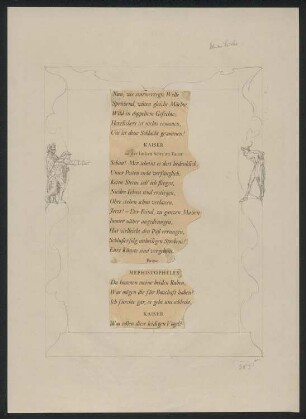 Nun, wie sturmerregte Welle
Sprühend, wüten gleiche Mächte
Wild in doppeltem Gefechte;
Herrlichers ist nichts ersonnen,
Uns ist diese Schlacht gewonnen!
KAISER
an der linken Seite zu Faust
Schau! Mir scheint es dort bedenklich,
Unser Posten steht verfänglich.
Keine Steine seh' ich fliegen,
Niedre Felsen sind erstiegen,
Obre stehen schon verlassen.
Jetzt! – Der Feind, zu ganzen Massen
Immer näher angedrungen,
Hat vielleicht den Paß errungen,
Schlußerfolg unheiligen Strebens!
Eure Künste sind vergebens.
Pause
MEPHISTOPHELES
Da kommen meine beiden Raben,
Was mögen die für Botschaft haben?
Ich fürchte gar, es geht uns schlecht.
KAISER
Was sollen diese leidigen Vögel?